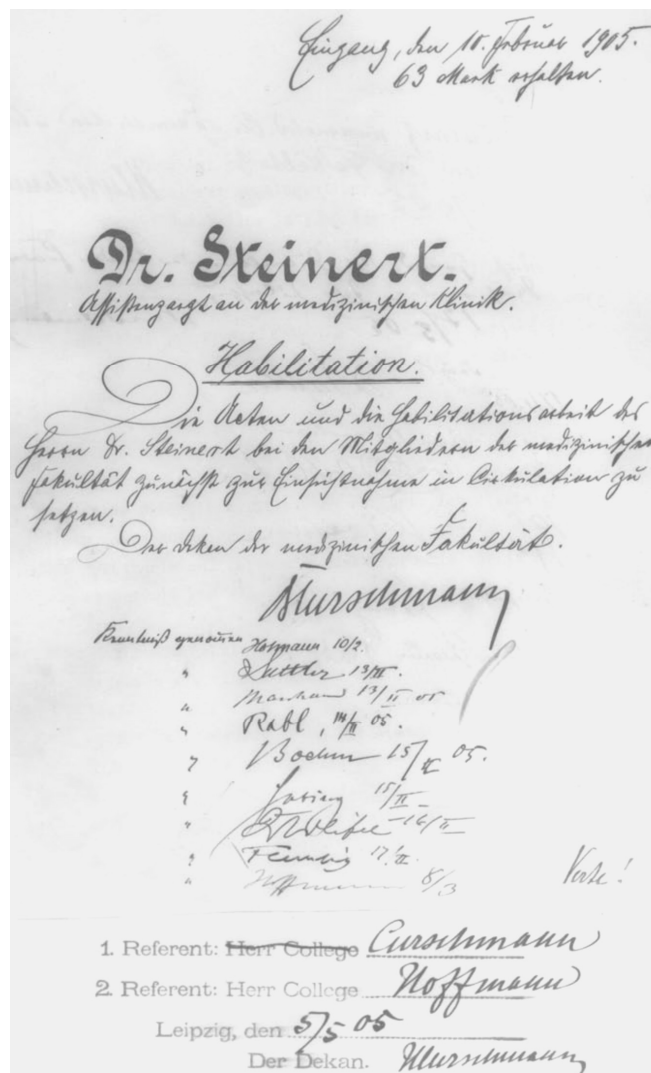 Eingang, den 10. Februar 1905.
63 Mark erhalten.
Dr. Steinert.
Assistenzarzt an der medizinischen Klinik.
Habilitation.
Die Acten und die Habilitationsarbeit des
Herrn Dr. Steinert bei den Mitgliedern der medizinischen
Fakultät zunächst zur Einsichtnahme in Cirkulation zu
setzen.
Der Dekan der medizinischen Fakultät.
Curschmann
Kenntniß genommen 10/2.
" Sattler 13/II.
" Marchand 13/II 05
" Rabl, 14/II 05.
" Boehm 15/II 05.
" 15/II
" 16/II
" Flechsig 17/II.
" Hoffmann 8/3
Verte!
1. Referent: Herr College Curschmann
2. Referent: Herr College Hoffmann
Leipzig, den 5/5 05
Der Dekan. Curschmann